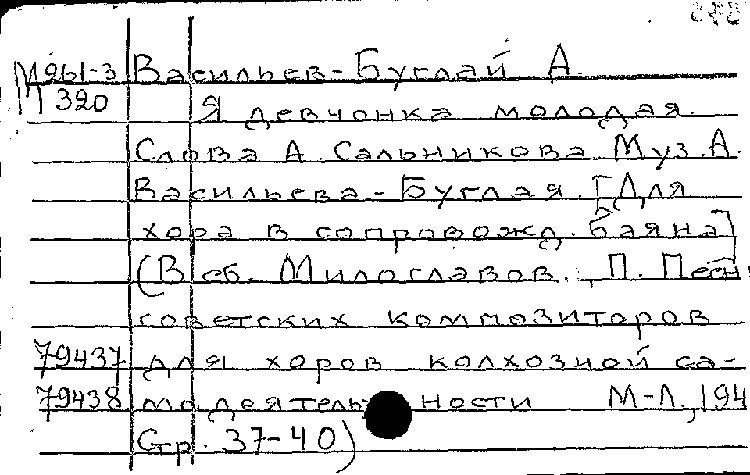 М261-3 Васильев-Буглай А.
М320 Я девчонка молодая.
Слова А. Сальникова. Муз. А.
Васильева-Буглая. [Для
хора в сопровожд. баяна]
(В сб. Милославов, П. Песни
советских композиторов
79437 для хоров колхозной са-
79438 модеятельности М-Л, 194
Стр. 37-40)